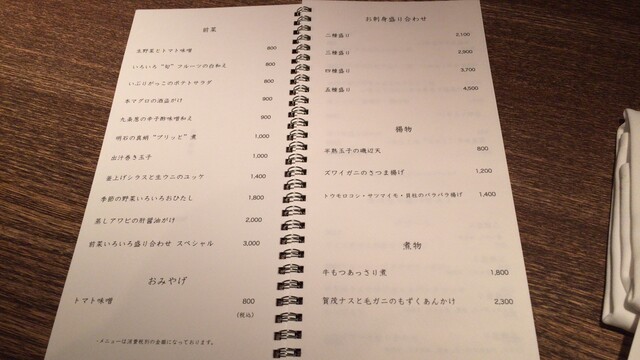 前菜
生野菜とトマト味噌 800
いろいろ“旬”フルーツの白和え 800
いぶりがっこのポテトサラダ 800
本マグロの酒盗がけ 800
九条葱の辛子酢味噌和え 900
明石の真蛸“プリっと”煮 1,000
出汁巻き玉子 1,000
釜上げシラスと生ウニのユッケ 1,400
季節の野菜いろいろおひたし 1,800
蒸しアワビの肝醤油がけ 2,000
前菜いろいろ盛り合わせ スペシャル 3,000
おみやげ
トマト味噌 800
(税込)
・メニューは消費税別の金額になっております。
お刺身盛り合わせ
二種盛り 2,100
三種盛り 2,900
四種盛り 3,700
五種盛り 4,500
揚物
半熟玉子の磯辺天 800
ズワイガニのさつま揚げ 1,200
トウモロコシ・サツマイモ・貝柱のバラバラ揚げ 1,400
煮物
牛もつあっさり煮 1,800
賀茂ナスと毛ガニのもずくあんかけ 2,300